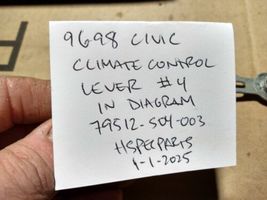 9698 CIVIC
CLIMATE CONTROL
LEVER #4
IN DIAGRAM
79512-S04-003
HSPECPARTS
1-1-2025